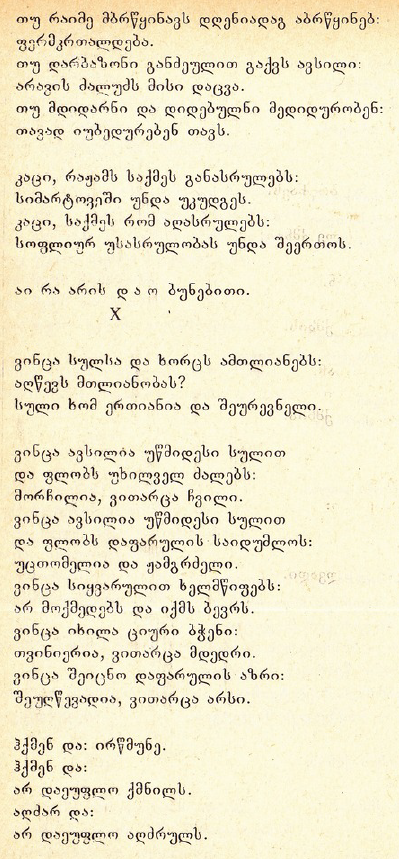 თუ რაიმე მბრწყინავს დღენიადაგ აბრწყინებ:
ფერმკრთალდება.
თუ დარბაზონი განძეულით გაქვს ავსილი:
არავის ძალუძს მისი დაცვა.
თუ მდიდარნი და დიდებულნი მედიდურობენ:
თავად იუბედურებენ თავს.
კაცი, რაჟამს საქმეს განასრულებს:
სიმარტოვეში უნდა უკუდგეს.
კაცი, საქმეს რომ აღასრულებს:
სოფლიურ უსასრულობას უნდა შეერთოს.
აი რა არის დაო ბუნებითი.
X
ვინცა სულსა და ხორცს ამთლიანებს:
აღწევს მთლიანობას?
სული ხომ ერთიანია და შეურევნელი.
ვინცა ავსილია უწმიდესი სულით
და ფლობს უხილველ ძალებს:
მორჩილია, ვითარცა ჩვილი.
ვინცა ავსილია უწმიდესი სულით
და ფლობს დაფარულის საიდუმლოს:
უცთომელია და ჟამგრძელი.
ვინცა სიყვარულით ხელმწიფებს:
არ მოქმედებს და იქმს ბევრს.
ვინცა იხილა ციური ბჭენი:
თვინიერია, ვითარცა მდედრი.
ვინცა შეიცნო დაფარულის აზრი:
შეუღწევადია, ვითარცა არსი.
ჰქმენ და: ირწმუნე.
ჰქმენ და:
არ დაეუფლო ქმნილს.
აღძარ და:
არ დაეუფლო აღძრულს.